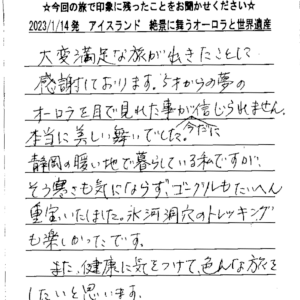 ☆今回の旅で印象に残ったことをお聞かせください☆
2023/1/14発 アイスランド 絶景に舞うオーロラと世界遺産
大変満足な旅が出きたことに
感謝しております。5才からの夢の
オーロラを目で見れた事が今だに信じられません。
本当に美しい舞いでした。
静岡の暖い地で暮らしている私ですが、
そう寒さも気にならず、ゴーグルもたいへん
重宝いたしました。氷河洞穴のトレッキング
も楽しかったです。
また、健康に気をつけて、色んな旅を
したいと思います。